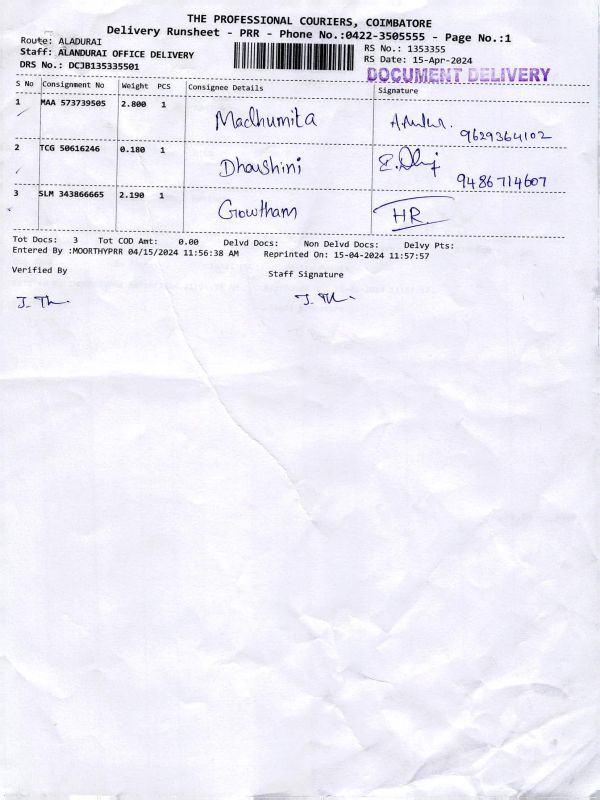 THE PROFESSIONAL COURIERS, COIMBATORE
Delivery Runsheet - PRR - Phone No.:0422-3505555 - Page No.:1
Route: ALADURAI
RS No.: 1353355
Staff: ALANDURAI OFFICE DELIVERY
RS Date: 15-Apr-2024
DRS No.: DCJB135335501
DOCUMENT DELIVERY
S No Consignment No Weight PCS Consignee Details Signature
1 MAA 573739505 2.800 1 Madhumita 9629364102
2 TCG 50616246 0.180 1 Dharshini 9486714607
3 SLM 343866665 2.190 1 Gowtham HR
Tot Docs: 3 Tot COD Amt: 0.00 Delvd Docs: Non Delvd Docs: Delvy Pts:
Entered By :MOORTHYPRR 04/15/2024 11:56:38 AM Reprinted On: 15-04-2024 11:57:57
Verified By Staff Signature